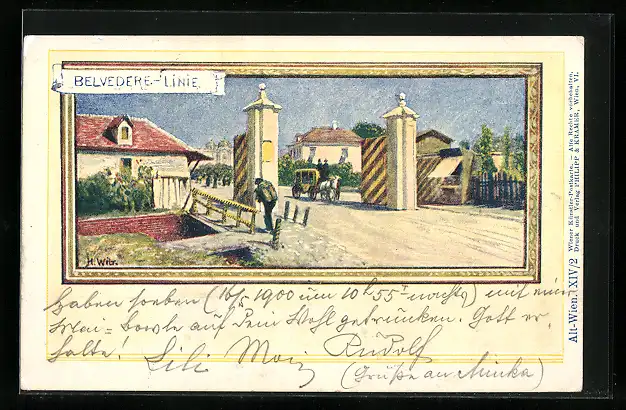 BELVEDERE-LINIE
H. Witr.
Alt-Wien. XIV/2
Wiener Künstler-Postkarte. – Alle Rechte vorbehalten.
Druck und Verlag PHILIPP & KRAMER, Wien, VI.
haben soeben (16/5 1900 um 10h 55 nachts) mit einer
Mai-bowle auf Dein Wohl getrunken. Gott er-
halte! Lili Rudolf
(Grüße an Minka)